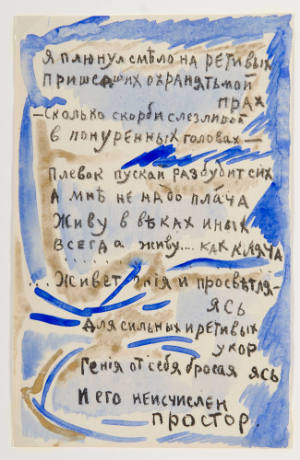 Я плюнул смѣло на ретивых
Пришедших охранять мой
прах
— Сколько скорби слезливой
в понуренных головах —
Плевок пускай разбудит сих
А мнѣ не надо плача
Живу в вѣках иных
Всегда живу.... как кляча
. . . . . .
... Живет гнія и просвѣтля-
ясь
Для сильных и ретивых
укор
Генія от себя бросая ясь
И его неисчислен
простор.